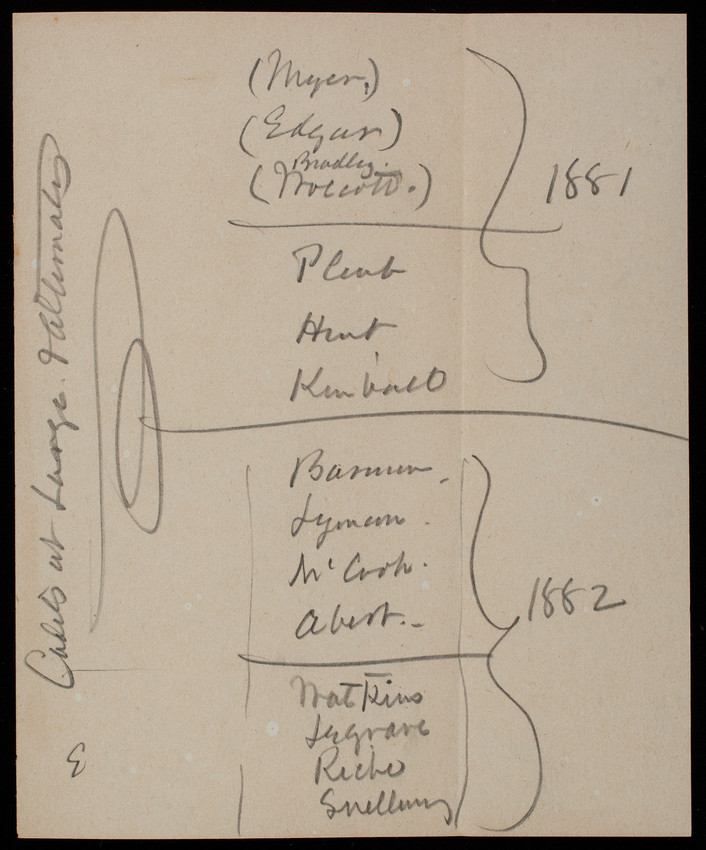 Cadets at Large. & Alternates
(Myer,)
(Edgar)
Bradley.
(Wolcott.)
1881
Plumb
Hunt
Kimball
Lyman.
McCook.
Abert.
1882
Watkins
Snelling
E